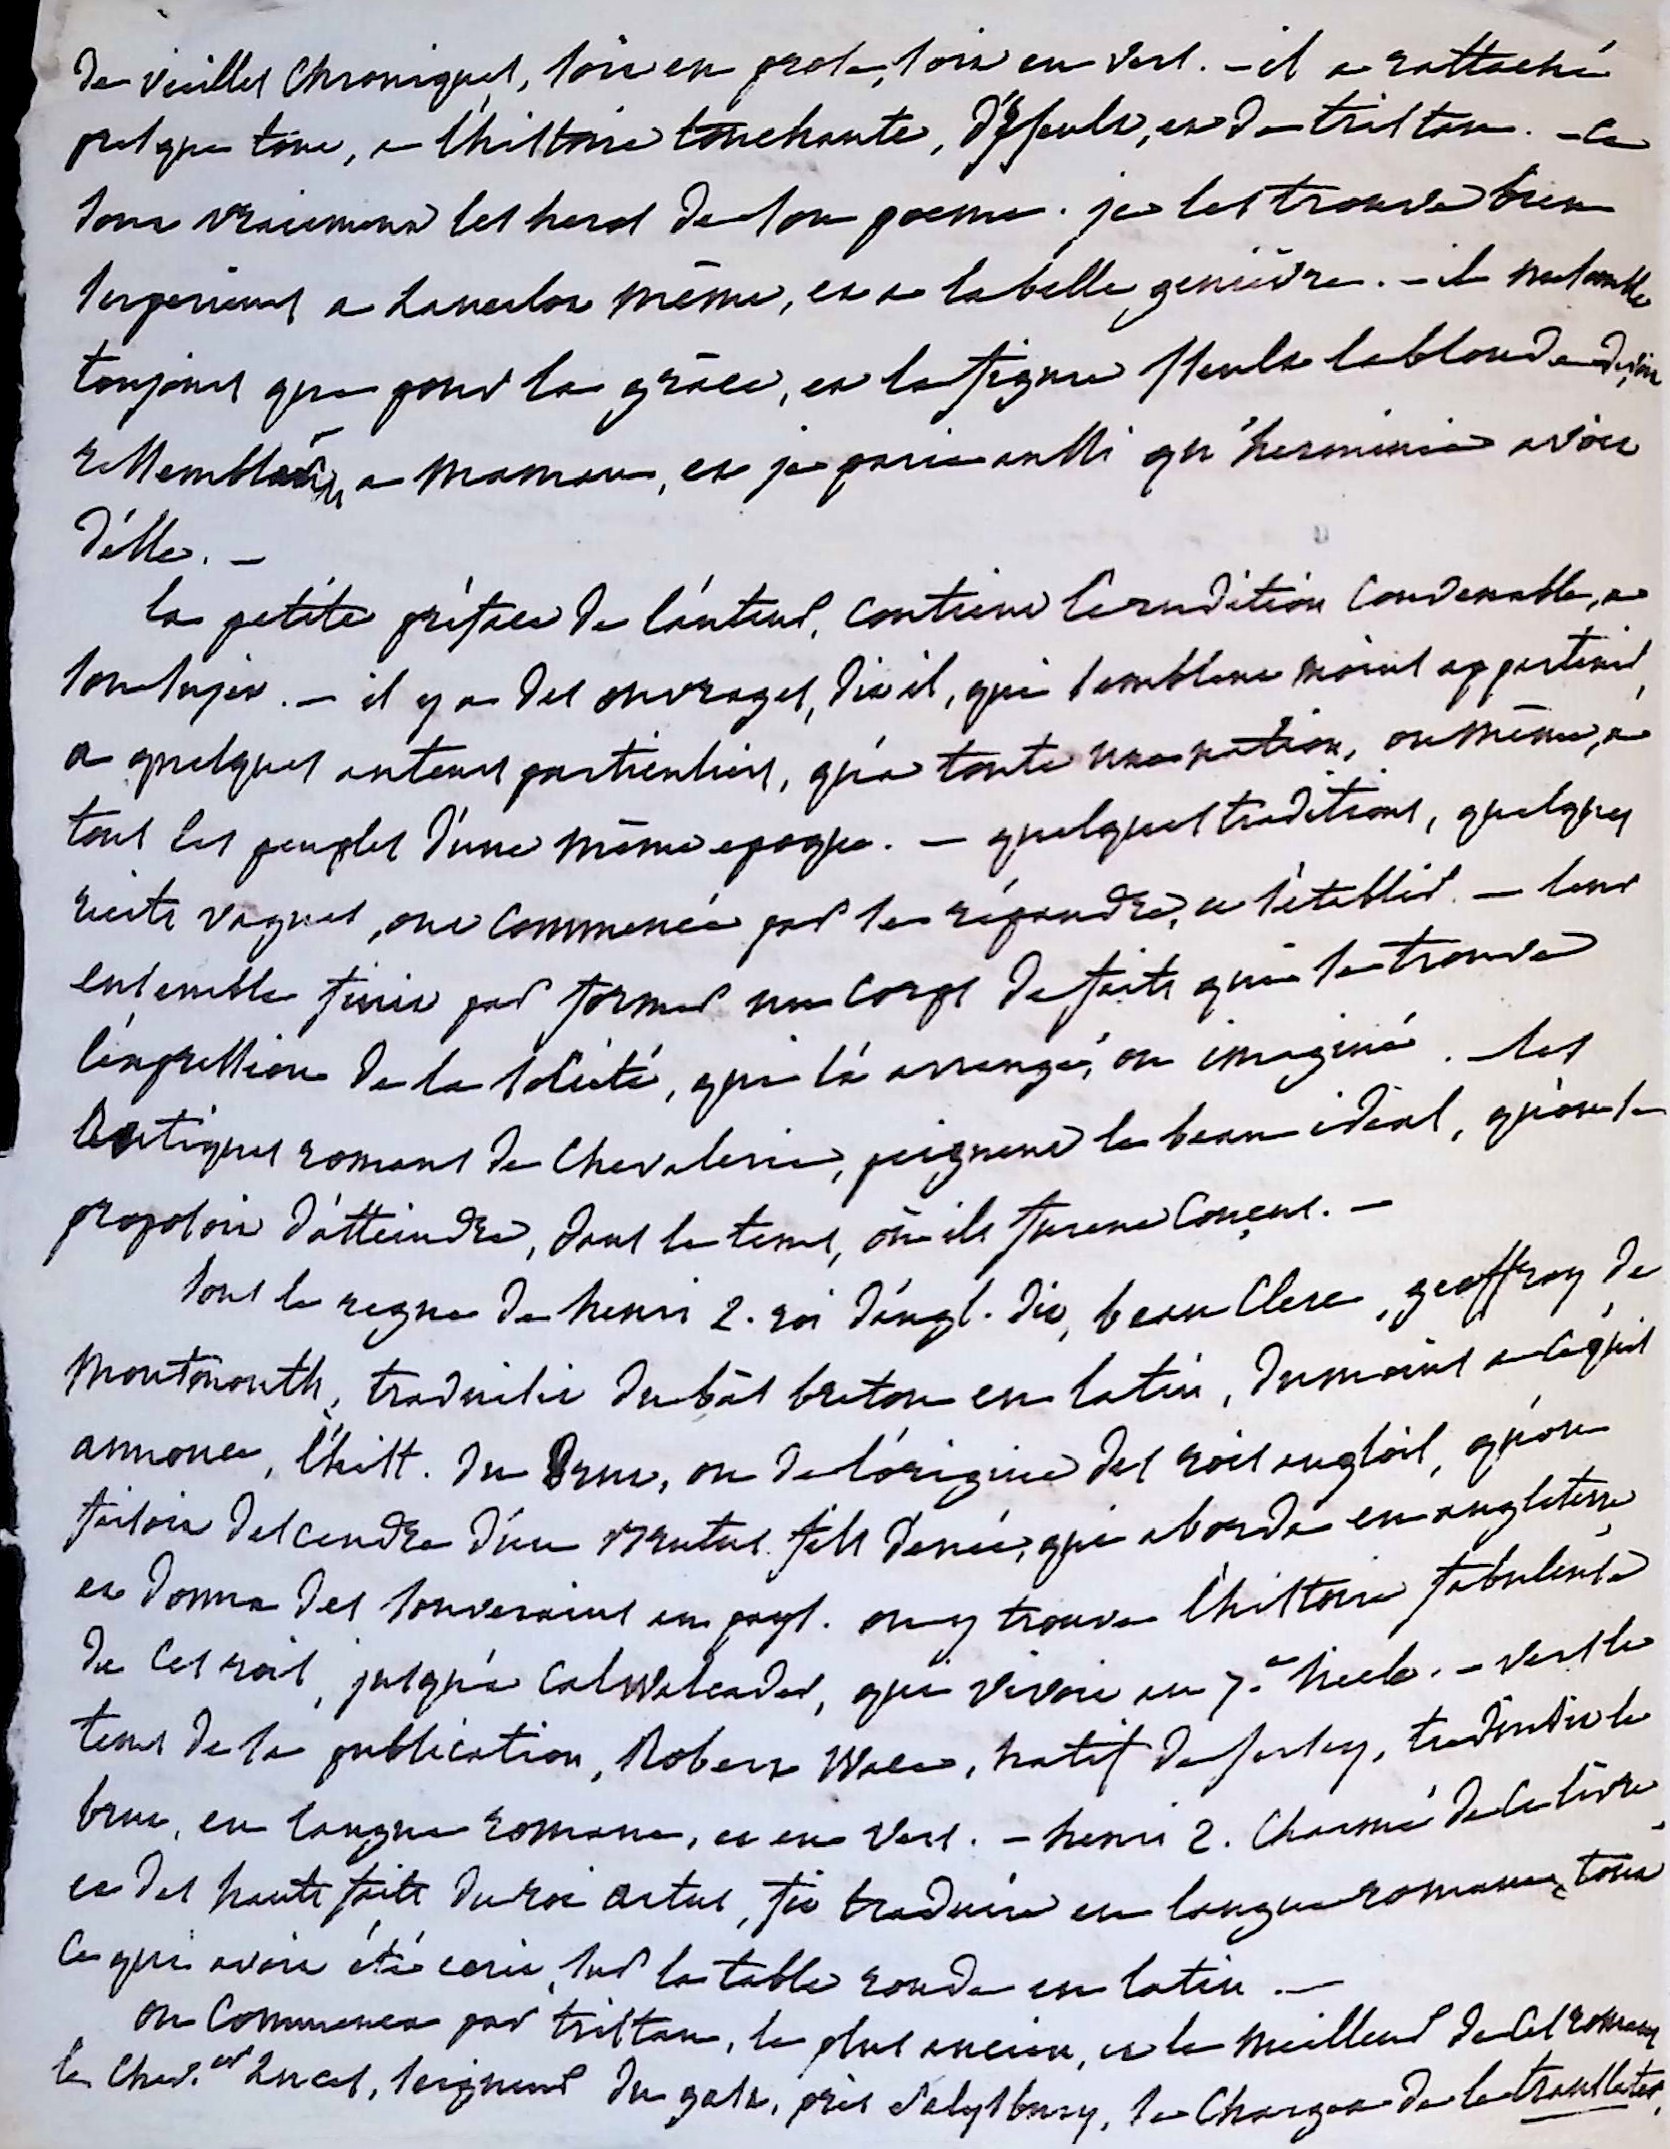 de vieilles Chroniques, soit en prose, soit en vers. – il a rattaché
presque tout, a l'histoire touchante, d'yseult, et de tristan. – Ce
sont vraiement les heros de son poeme. je les trouve bien
superieurs a Lancelot même, et a la belle genièvre. – il me semble
toujours que pour la grâce, et la figure Yseult la blonde devoit
ressembler a maman, et je parie aussi qu'herminie avoit
d'elle. –
la petite préface de l'auteur, contient l'erudition convenable, a
son sujet. – il y a des ouvrages, dit il, qui semblent moins appartenir,
a quelques auteurs particuliers, qu'a toute une nation, ou même, a
tous les peuples d'une même epoque. – quelques traditions, quelques
recits vagues, ont commencé par se répandre, et s'etablir. – leur
ensemble finit par former un corps de faits qui se trouve
l'expression de la societé, qui l'a arrangé, ou imaginé. – les
antiques romans de Chevalerie, peignent le beau idéal, qu'on se
proposoit d'atteindre, dans le tems, où ils furent Conçus. –
sous le regne de henri 2. roi d'angl. dit, beau Clerc, geoffroy de
Montmouth, traduisit du bas breton en latin, du moins a ce qu'il
annonce, l'hist. du Brut, ou de l'origine des rois anglois, qu'on
faisoit descendre d'un Brutus fils d'enée, qui aborda en angleterre,
et donna des souverains au pays. on y trouve l'histoire fabuleuse
de ces rois, jusqu'a Calwaleader, qui vivoit au 7.e siecle. – vers le
tems de la publication, Robert Wace, natif de Jersey, traduisit le
brut, en langue romane, et en vers. – henri 2. Charmé de Ce livre,
et des hauts faits du roi Artus, fit traduire en langue romane, tout
Ce qui avoit été ecrit, sur la table ronde en latin. –
on Commença par tristan, le plus ancien, et le meilleur de Ces romans
le Chev.er Luces, seigneur du gast, près Salysbury, se Chargea de le translater,